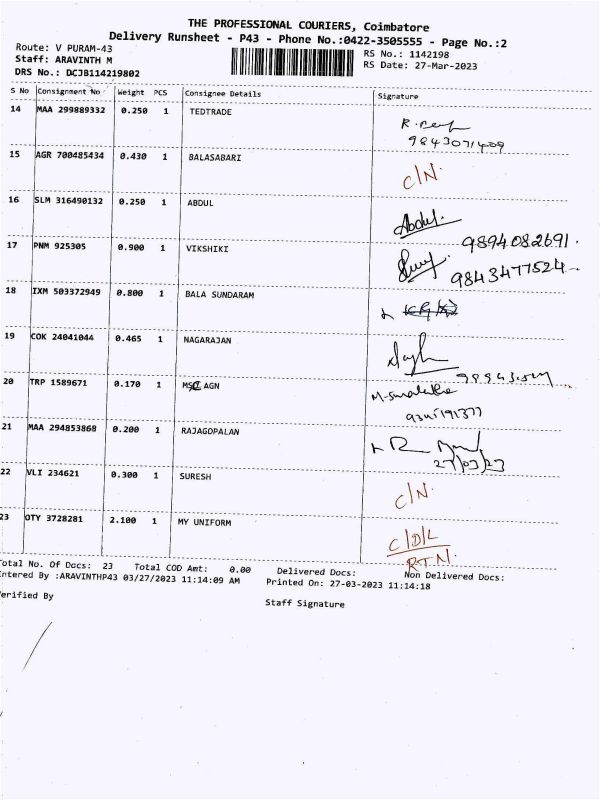 THE PROFESSIONAL COURIERS, Coimbatore
Delivery Runsheet - P43 - Phone No.:0422-3505555 - Page No.:2
Route: V PURAM-43
RS No.: 1142198
Staff: ARAVINTH M
RS Date: 27-Mar-2023
DRS No.: DCJB114219802
S No Consignment No Weight PCS Consignee Details Signature
14 MAA 299889332 0.250 1 TEDTRADE
9843071409
15 AGR 700485434 0.430 1 BALASABARI
C/N.
16 SLM 316490132 0.250 1 ABDUL
Abdul.
9894082691.
17 PNM 925305 0.900 1 VIKSHIKI
9843477524-
18 IXM 503372949 0.800 1 BALA SUNDARAM
19 COK 24041044 0.465 1 NAGARAJAN
20 TRP 1589671 0.170 1 MSC AGN
9345191377
21 MAA 294853868 0.200 1 RAJAGOPALAN
27/03/23
22 VLI 234621 0.300 1 SURESH
C/N.
23 OTY 3728281 2.100 1 MY UNIFORM
C/D/L
R.T.N.
Total No. Of Docs: 23 Total COD Amt: 0.00 Delivered Docs: Non Delivered Docs:
Entered By :ARAVINTHP43 03/27/2023 11:14:09 AM Printed On: 27-03-2023 11:14:18
Verified By
Staff Signature